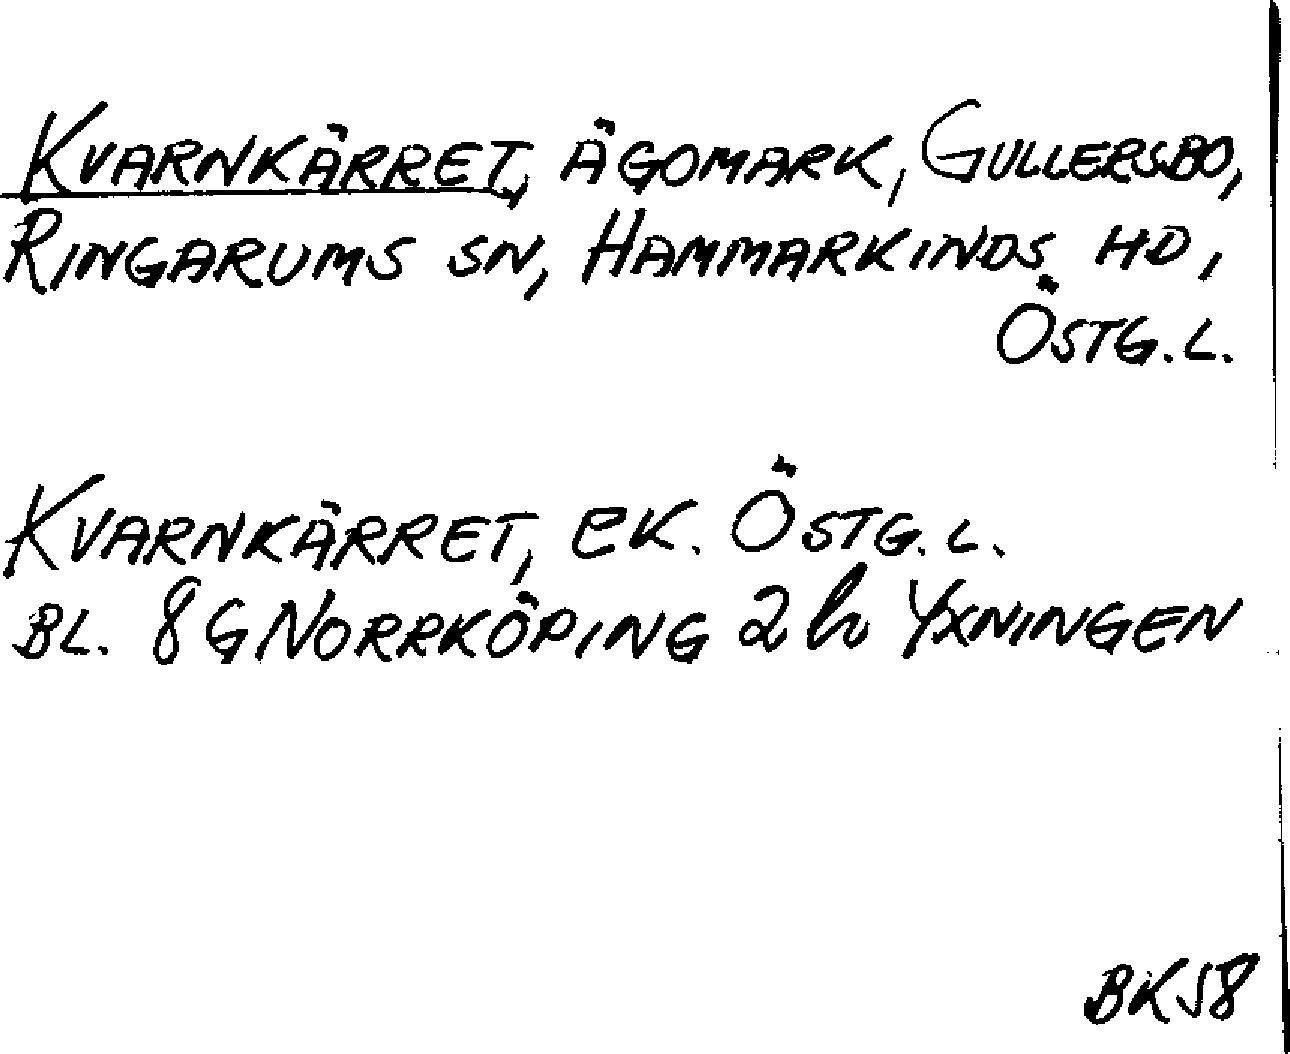 KVARNKÄRRET, ÄGOMARK, GULLERSBO,
RINGARUMS SN, HAMMARKINDS HD,
ÖSTG.L.
KVARNKÄRRET, EK. ÖSTG.L.
BL. 8 G NORRKÖPING 2 h YXNINGEN
BK58